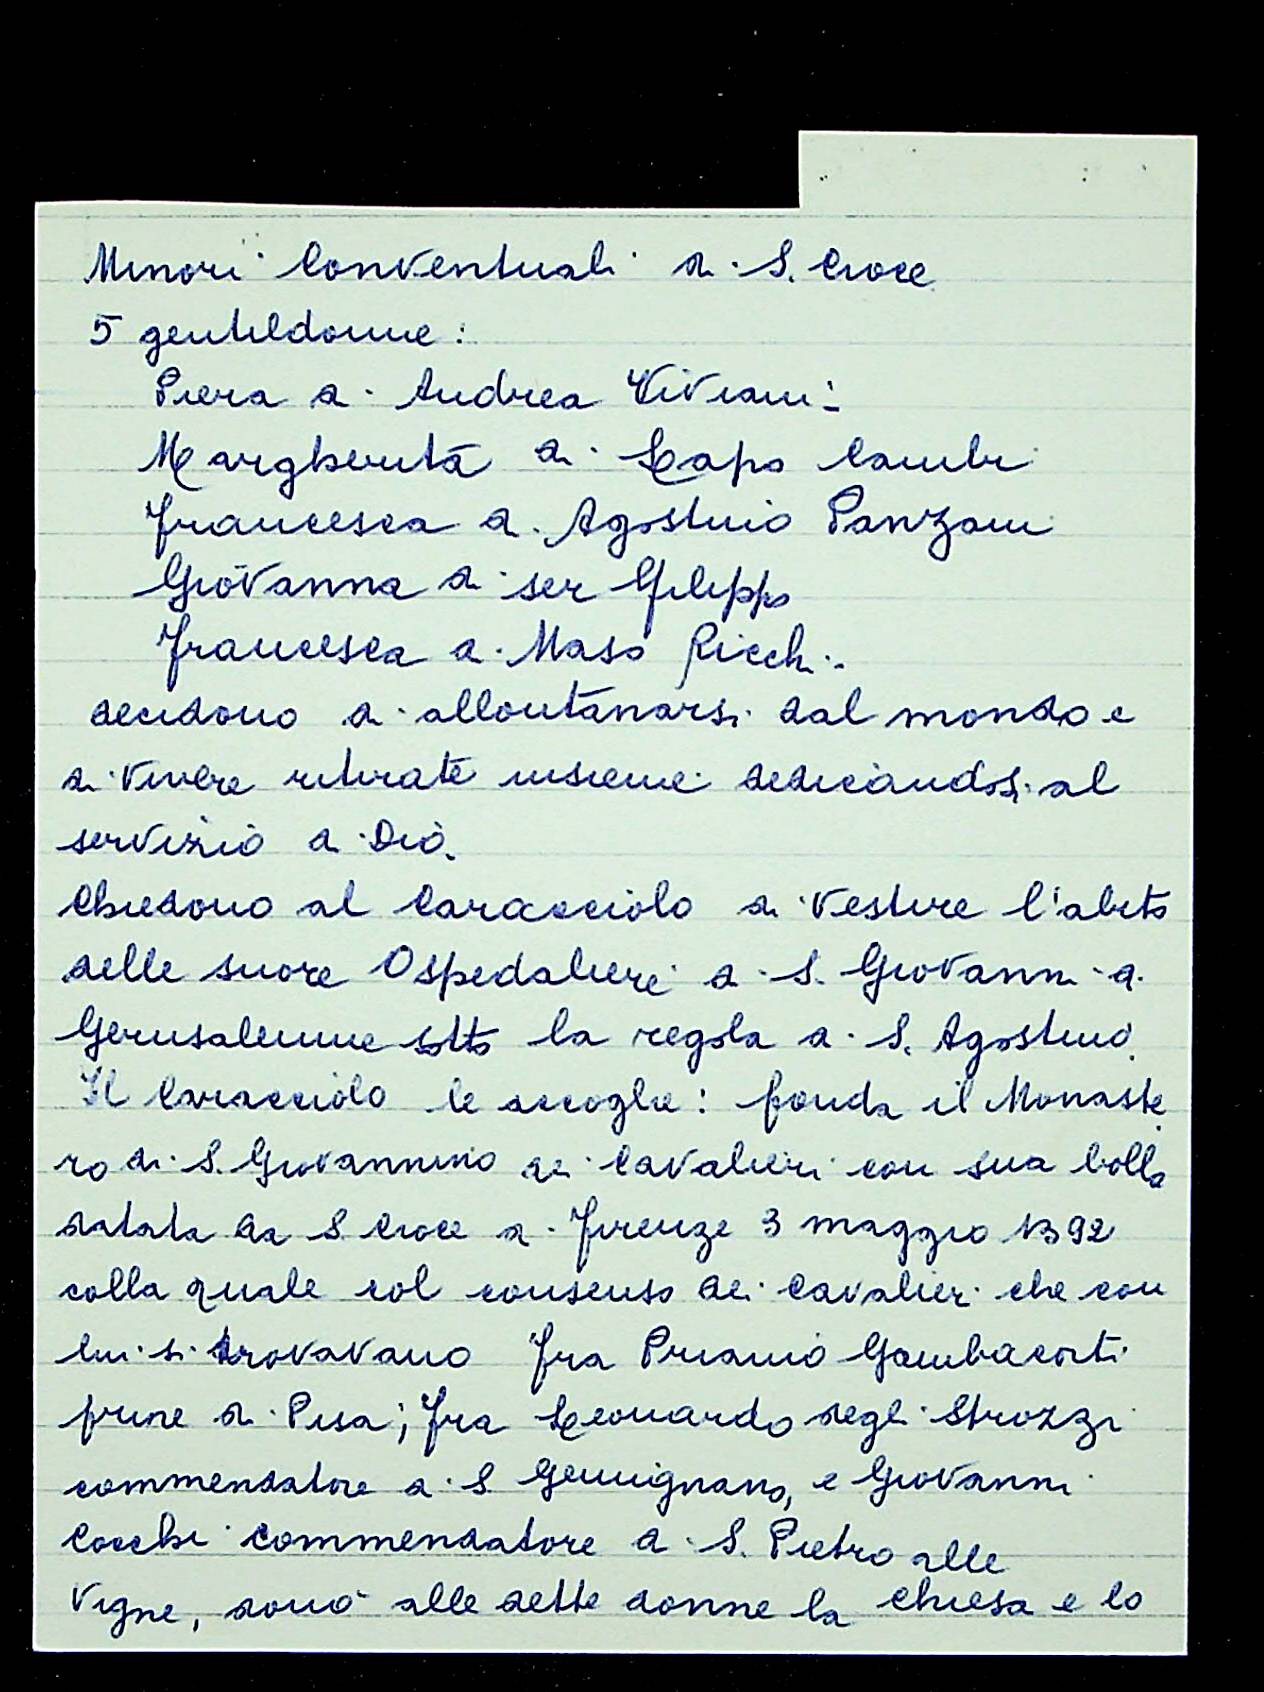 Minori Conventuali di S. Croce
5 gentildonne:
Piera di Andrea Viviani
Margherita di Lapo Cambi
Francesca di Agostino Panzani
Giovanna di ser Filippo
Francesca di Maso Ricchi
decidono di allontanarsi dal mondo e
di vivere ritirate insieme dedicandosi al
servizio di Dio.
Chiedono al Caracciolo di vestire l'abito
delle suore Ospedaliere di S. Giovanni di
Gerusalemme sotto la regola di S. Agostino.
Il Caracciolo le accoglie: fonda il Monaste
ro di S. Giovannino dei Cavalieri con sua bolla
datata da S. Croce di Firenze 3 maggio 1392
colla quale col consenso dei cavalieri che con
lui si trovavano Fra Priamo Gambacorti
priore di Pisa; Fra Leonardo degli Strozzi
commendatore di S. Gemignano, e Giovanni
Cocchi commendatore di S. Pietro alle
Vigne, donò alle dette donne la chiesa e lo